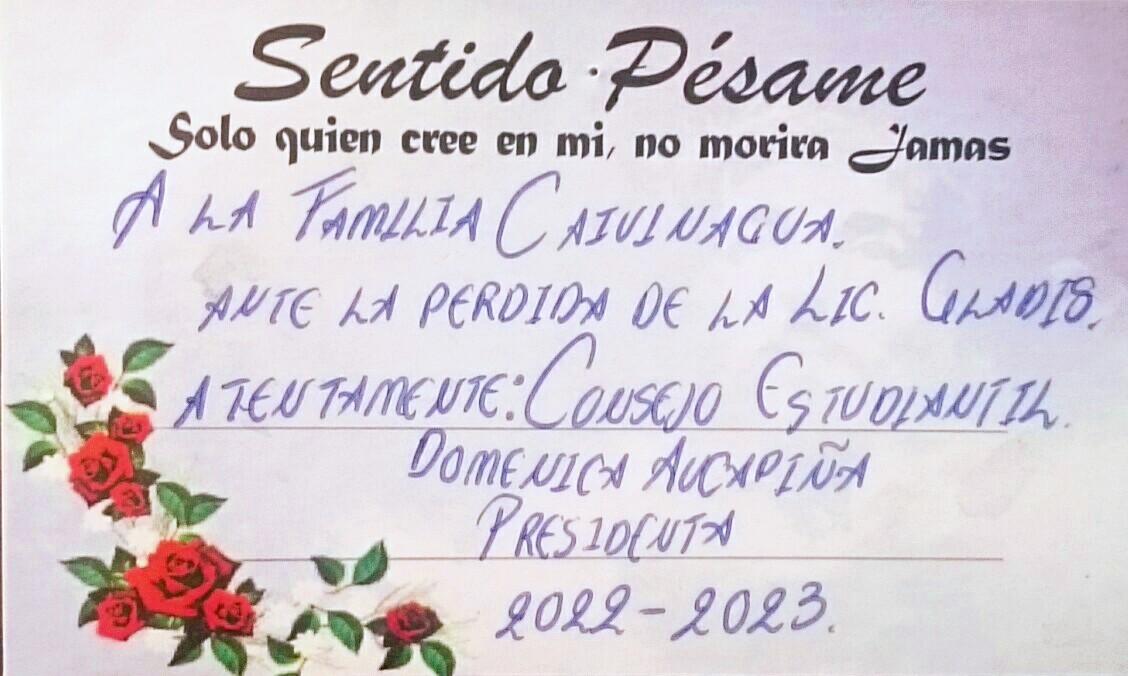 Sentido Pésame
Solo quien cree en mi, no morira Jamas
A LA FAMILIA CAIVINAGUA.
ANTE LA PERDIDA DE LA LIC. GLADIS.
ATENTAMENTE: CONSEJO ESTUDIANTIL.
DOMENICA AUCAPIÑA
PRESIDENTA
2022-2023.